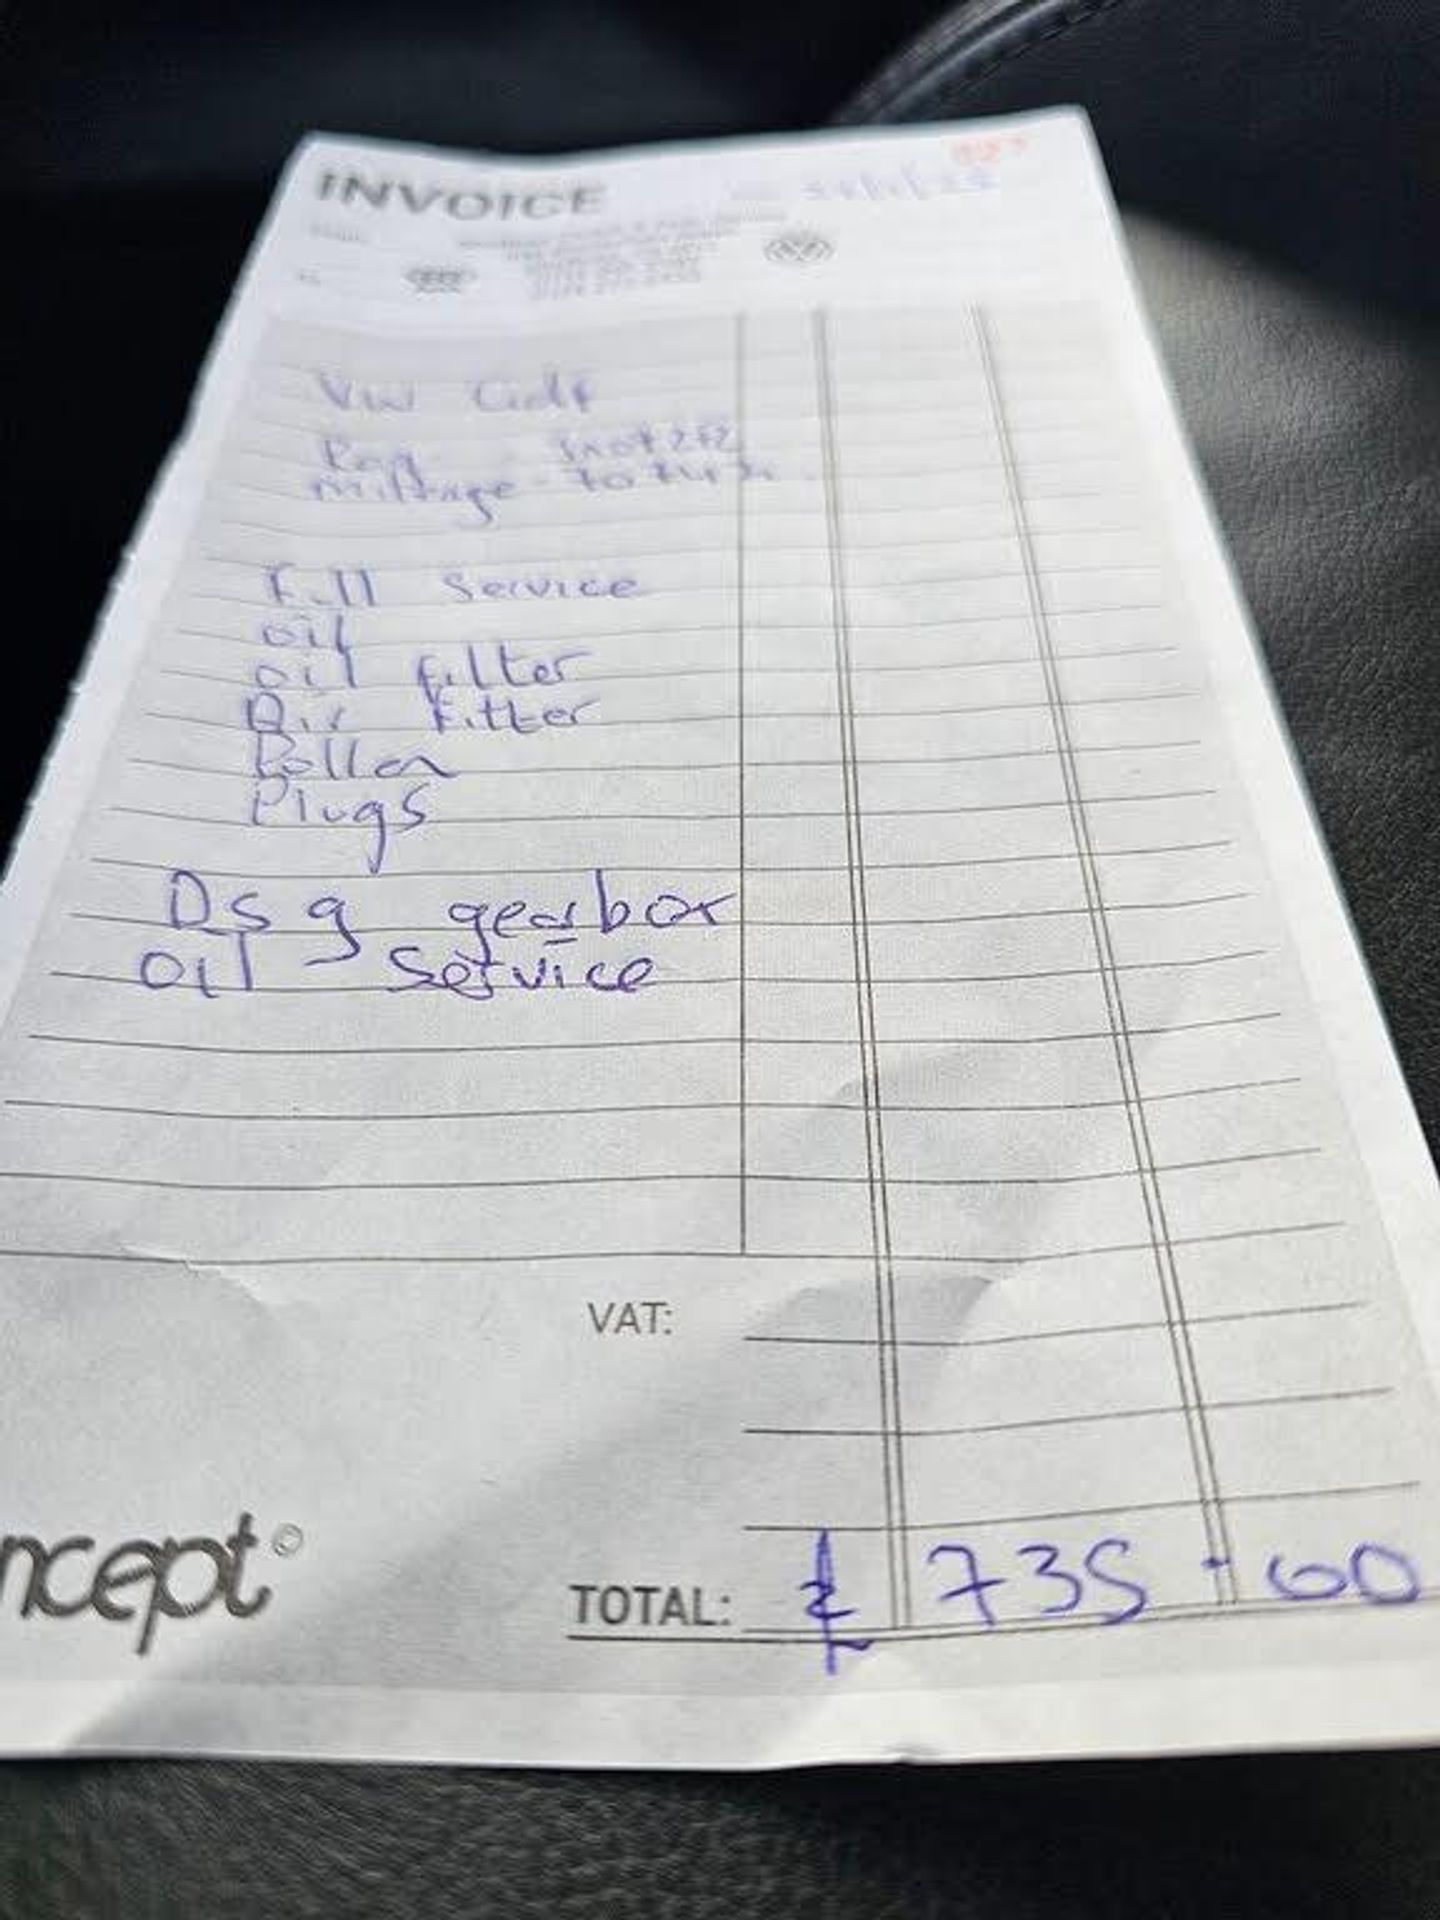 INVOICE
VW Golf
Reg -
mileage -
Full Service
oil
oil filter
Air Filter
Pollen
Plugs
Dsg gearbox
oil Service
VAT:
ncept©
TOTAL: £ 735 - 00